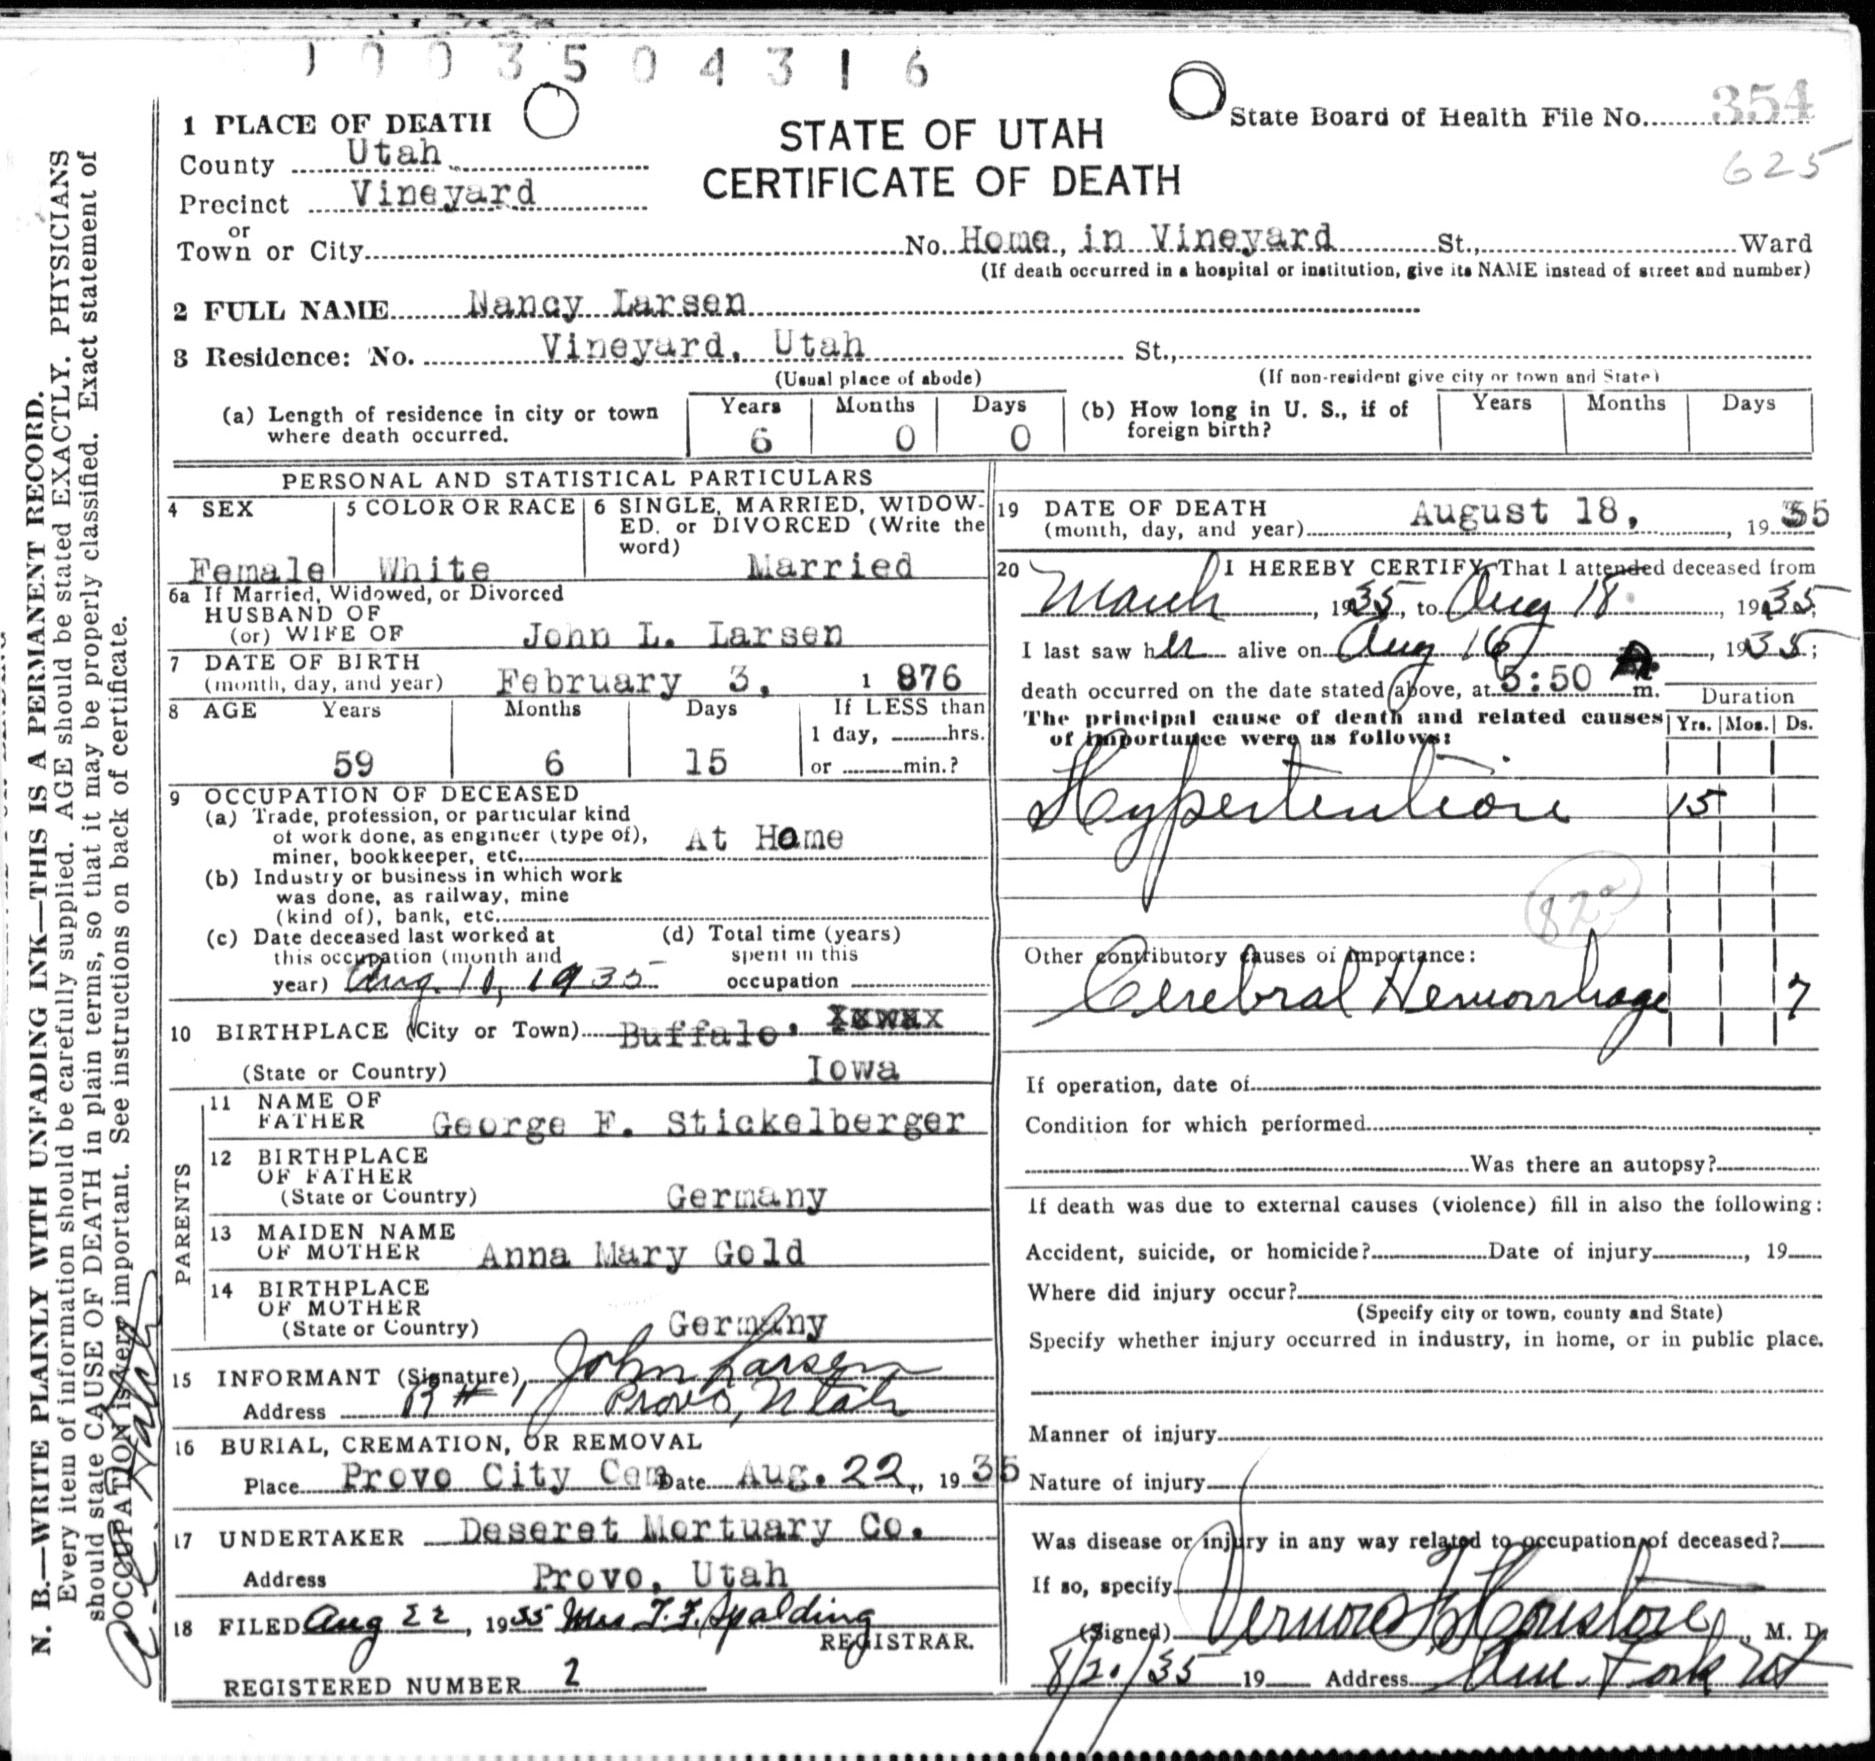 1 0 0 3 5 0 4 3 1 6
1 PLACE OF DEATH
County Utah
Precinct Vineyard
or
Town or City
STATE OF UTAH
CERTIFICATE OF DEATH
State Board of Health File No. 354
625
No. Home, in Vineyard St., Ward
(If death occurred in a hospital or institution, give its NAME instead of street and number)
2 FULL NAME Nancy Larsen
3 Residence: No. Vineyard, Utah St.,
(Usual place of abode) (If non-resident give city or town and State)
(a) Length of residence in city or town where death occurred. Years 6 Months 0 Days 0
(b) How long in U. S., if of foreign birth? Years Months Days
PERSONAL AND STATISTICAL PARTICULARS
4 SEX
Female
5 COLOR OR RACE
White
6 SINGLE, MARRIED, WIDOW-
ED, or DIVORCED (Write the
word)
Married
6a If Married, Widowed, or Divorced
HUSBAND OF
(or) WIFE OF John L. Larsen
7 DATE OF BIRTH
(month, day, and year) February 3, 1 876
8 AGE Years Months Days If LESS than
1 day, hrs.
59 6 15 or min.?
9 OCCUPATION OF DECEASED
(a) Trade, profession, or particular kind
of work done, as engineer (type of),
miner, bookkeeper, etc. At Home
(b) Industry or business in which work
was done, as railway, mine
(kind of), bank, etc.
(c) Date deceased last worked at
this occupation (month and
year) Aug. 11, 1935
(d) Total time (years)
spent in this
occupation
10 BIRTHPLACE (City or Town) Buffalo,
(State or Country) Iowa
PARENTS
11 NAME OF
FATHER George F. Stickelberger
12 BIRTHPLACE
OF FATHER
(State or Country) Germany
13 MAIDEN NAME
OF MOTHER Anna Mary Gold
14 BIRTHPLACE
OF MOTHER
(State or Country) Germany
15 INFORMANT (Signature) John Larsen
Address R # 1 Provo, Utah
16 BURIAL, CREMATION, OR REMOVAL
Place Provo City Cem Date Aug. 22, 1935
17 UNDERTAKER Deseret Mortuary Co.
Address Provo, Utah
18 FILED Aug 22, 1935 Mrs T. F. Spalding
REGISTRAR.
REGISTERED NUMBER 2
19 DATE OF DEATH
(month, day, and year) August 18, 1935
20 I HEREBY CERTIFY, That I attended deceased from
March, 1935, to Aug 18, 1935,
I last saw her alive on Aug 16, 1935;
death occurred on the date stated above, at 5:50 m.
Duration
The principal cause of death and related causes
of importance were as follows:
Yrs. Mos. Ds.
Hypertention 15
82a
Other contributory causes of importance:
Cerebral Hemorrhage 7
If operation, date of
Condition for which performed
Was there an autopsy?
If death was due to external causes (violence) fill in also the following:
Accident, suicide, or homicide? Date of injury, 19
Where did injury occur?
(Specify city or town, county and State)
Specify whether injury occurred in industry, in home, or in public place.
Manner of injury
Nature of injury
Was disease or injury in any way related to occupation of deceased?
If so, specify
(Signed) Vernon F Houston, M. D.
8/21/35 19 Address Am. Fork Ut
N. B.—WRITE PLAINLY WITH UNFADING INK—THIS IS A PERMANENT RECORD.
Every item of information should be carefully supplied. AGE should be stated EXACTLY. PHYSICIANS
should state CAUSE OF DEATH in plain terms, so that it may be properly classified. Exact statement of
OCCUPATION is very important. See instructions on back of certificate.